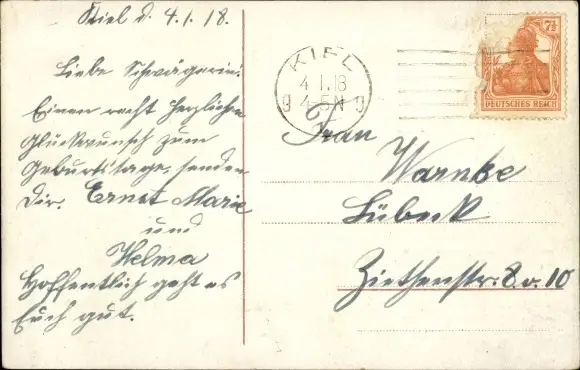 Kiel d. 4.1.18.
Liebe Schwägerin!
Einen recht herzlichen
Glückwunsch zum
Geburtstage, senden
Dir. Ernst Marie
und
Helma
Hoffentlich geht es
Euch gut.
KIEL
4.1.18
g 4-5N g
7½
DEUTSCHES REICH
Frau
Warnke
Lübeck
Ziethenstr. 8 o. 10